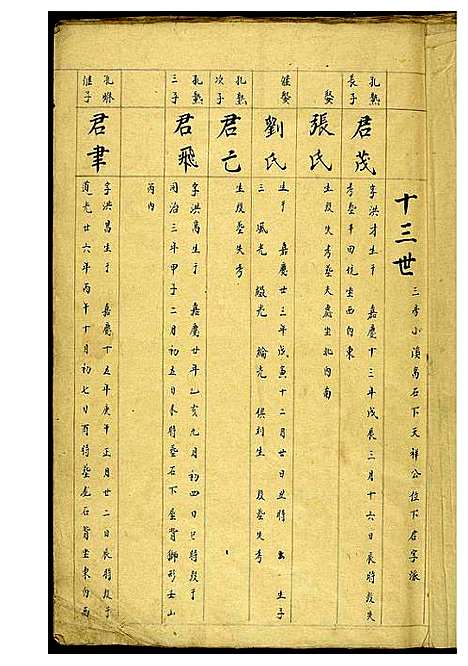 十三世
三秀小濆高石下天祥公位下君字派
孔熟
長子
君茂
字洪才生于 嘉慶十三年戊辰三月十六日辰時殁失
考葬平田坑坐西向東
娶
張氏
生殁失考葬天處坐北向南
繼娶
劉氏
生于 嘉慶廿三年戊寅十二月廿日丑時 生子
三 風光 緞光 綸光 俱利生 殁葬失考
孔熟
次子
君亡
生殁葬失考
孔熟
三子
君飛
字洪高生于 嘉慶廿年乙亥九月初四日巳時殁于
同治三年甲子二月初五日未時葬石下屋背獅形土山
丙向
孔
進子
君聿
字洪昌生于 嘉慶十五年庚午正月廿二日辰時殁于
道光廿六年丙午十月初七日酉時葬龙石背坐東向西